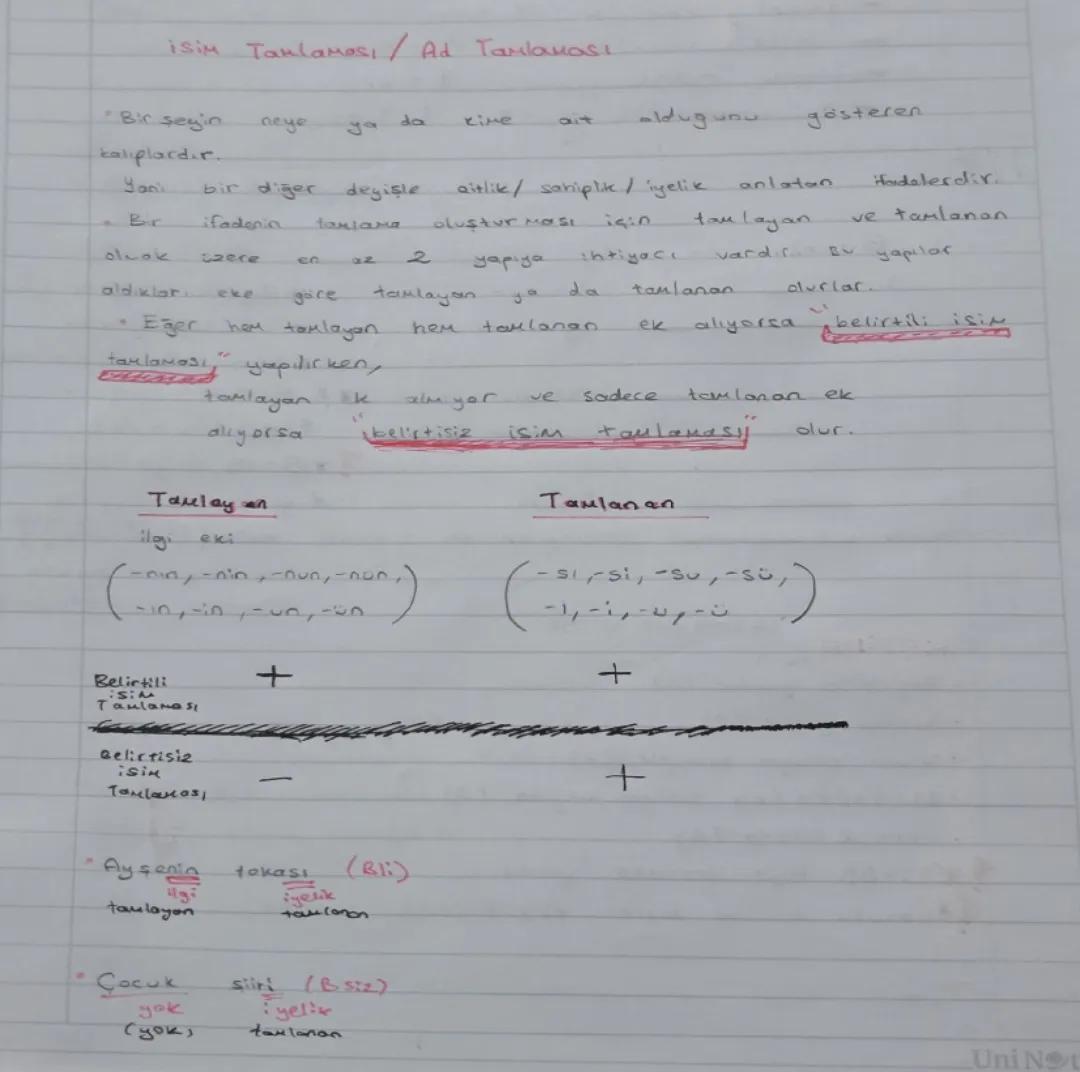 isim Tamlaması / Ad Tamlaması
• Bir şeyin neye ya da kime ait olduğunu gösteren
kalıplardır.
Yani bir diğer deyişle aitlik / sahiplik / iyelik anlatan ifadelerdir.
• Bir ifadenin tamlama oluşturması için tamlayan ve tamlanan
olmak üzere en az 2 yapıya ihtiyacı vardır. Bu yapılar
aldıkları eke göre tamlayan ya da tamlanan olurlar.
• Eğer hem tamlayan hem tamlanan ek alıyorsa "belirtili isim
tamlaması" yapılırken,
tamlayan ek almıyor ve sadece tamlanan ek
alıyorsa "belirtisiz isim tamlaması" olur.
Tamlayan Tamlanan
ilgi eki
(-nın, -nin, -nun, -nün, (-sı, -si, -su, -sü,
-ın, -in, -un, -ün) -ı, -i, -u, -ü)
Belirtili + +
isim
Tamlaması
Belirtisiz
isim - +
Tamlaması
• Ayşenin tokası (Bli)
ilgi iyelik
tamlayan tamlanan
• Çocuk şiiri (Bsiz)
yok iyelik
(yok) tamlanan
UniNot